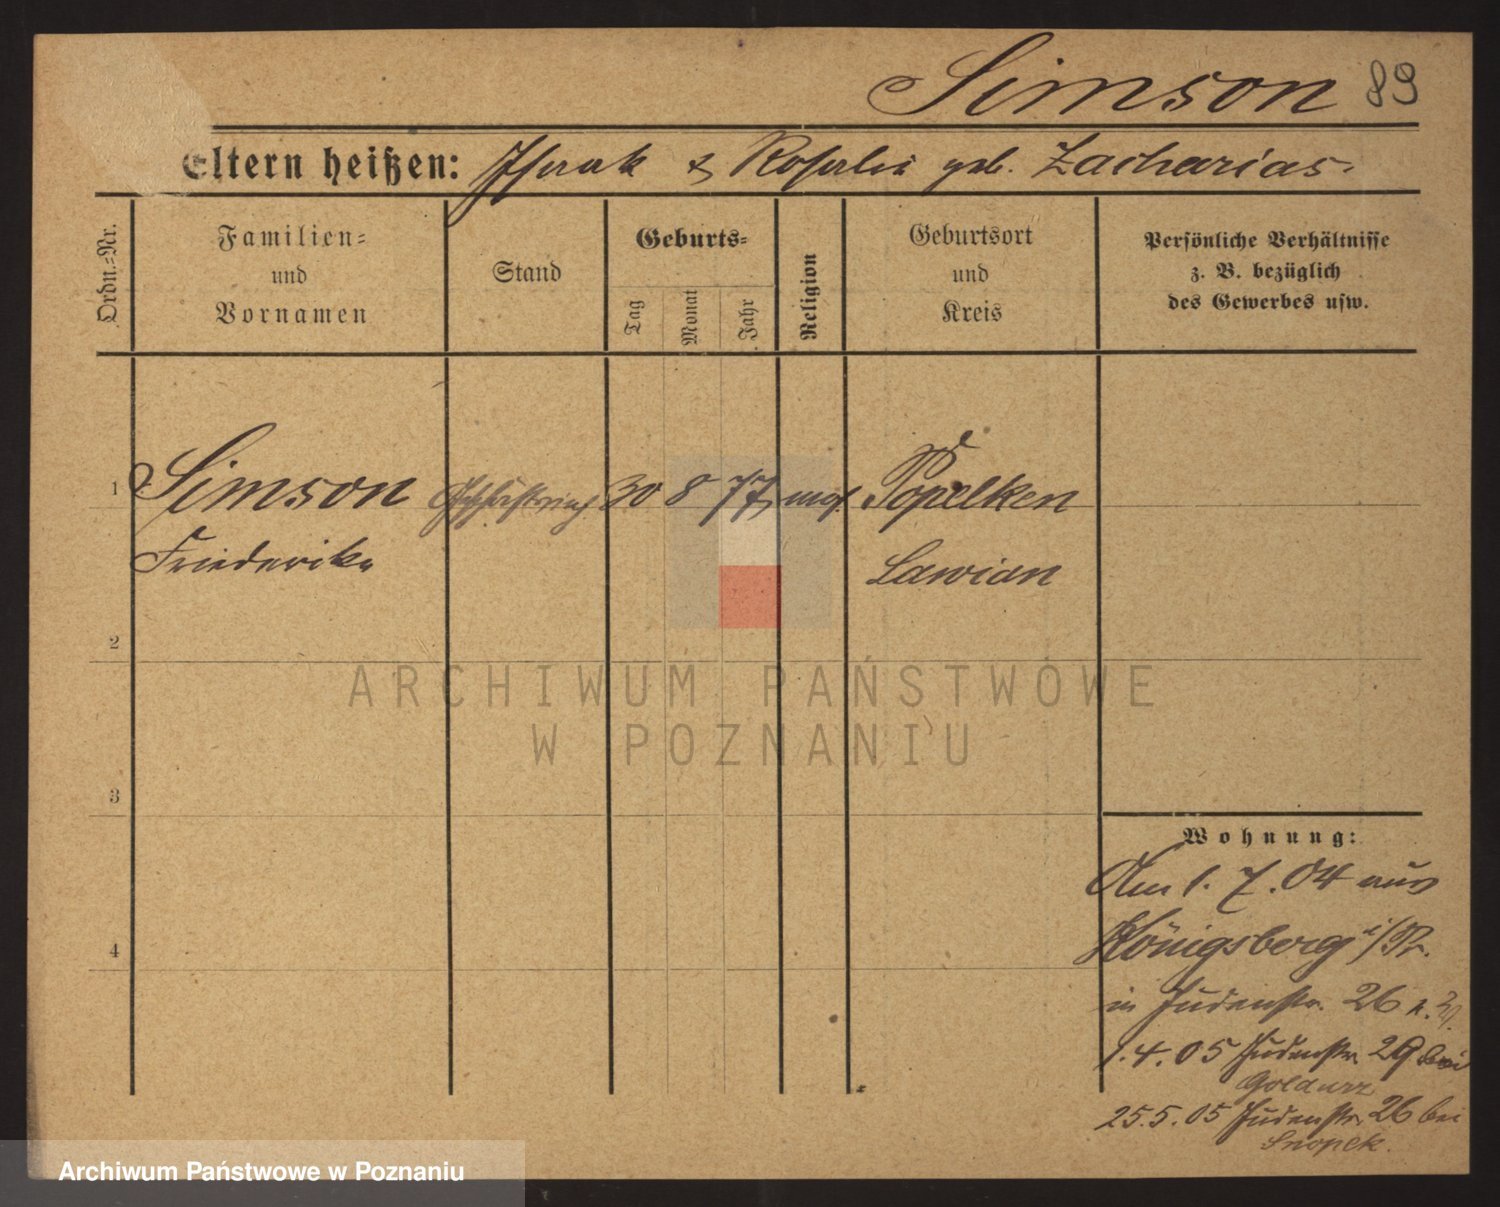 Simson 89
Eltern heißen: Isaak & Rosalie geb. Zacharias.
Ordn.=Nr.
Familien=
und
Vornamen
Stand
Geburts=
Tag
Monat
Jahr
Religion
Geburtsort
und
Kreis
Persönliche Verhältnisse
z. B. bezüglich
des Gewerbes usw.
1 Simson 30 8 77 mos. Popelken
Friederike Lawian
2
3
4
Wohnung:
Am 1. 7. 04 aus
Königsberg i/Pr.
in Judenstr. 26
1. 4. 05 Judenstr 29 bei
25. 5. 05 Judenstr 26 bei
Snopek.
ARCHIWUM PAŃSTWOWE
W POZNANIU
Archiwum Państwowe w Poznaniu